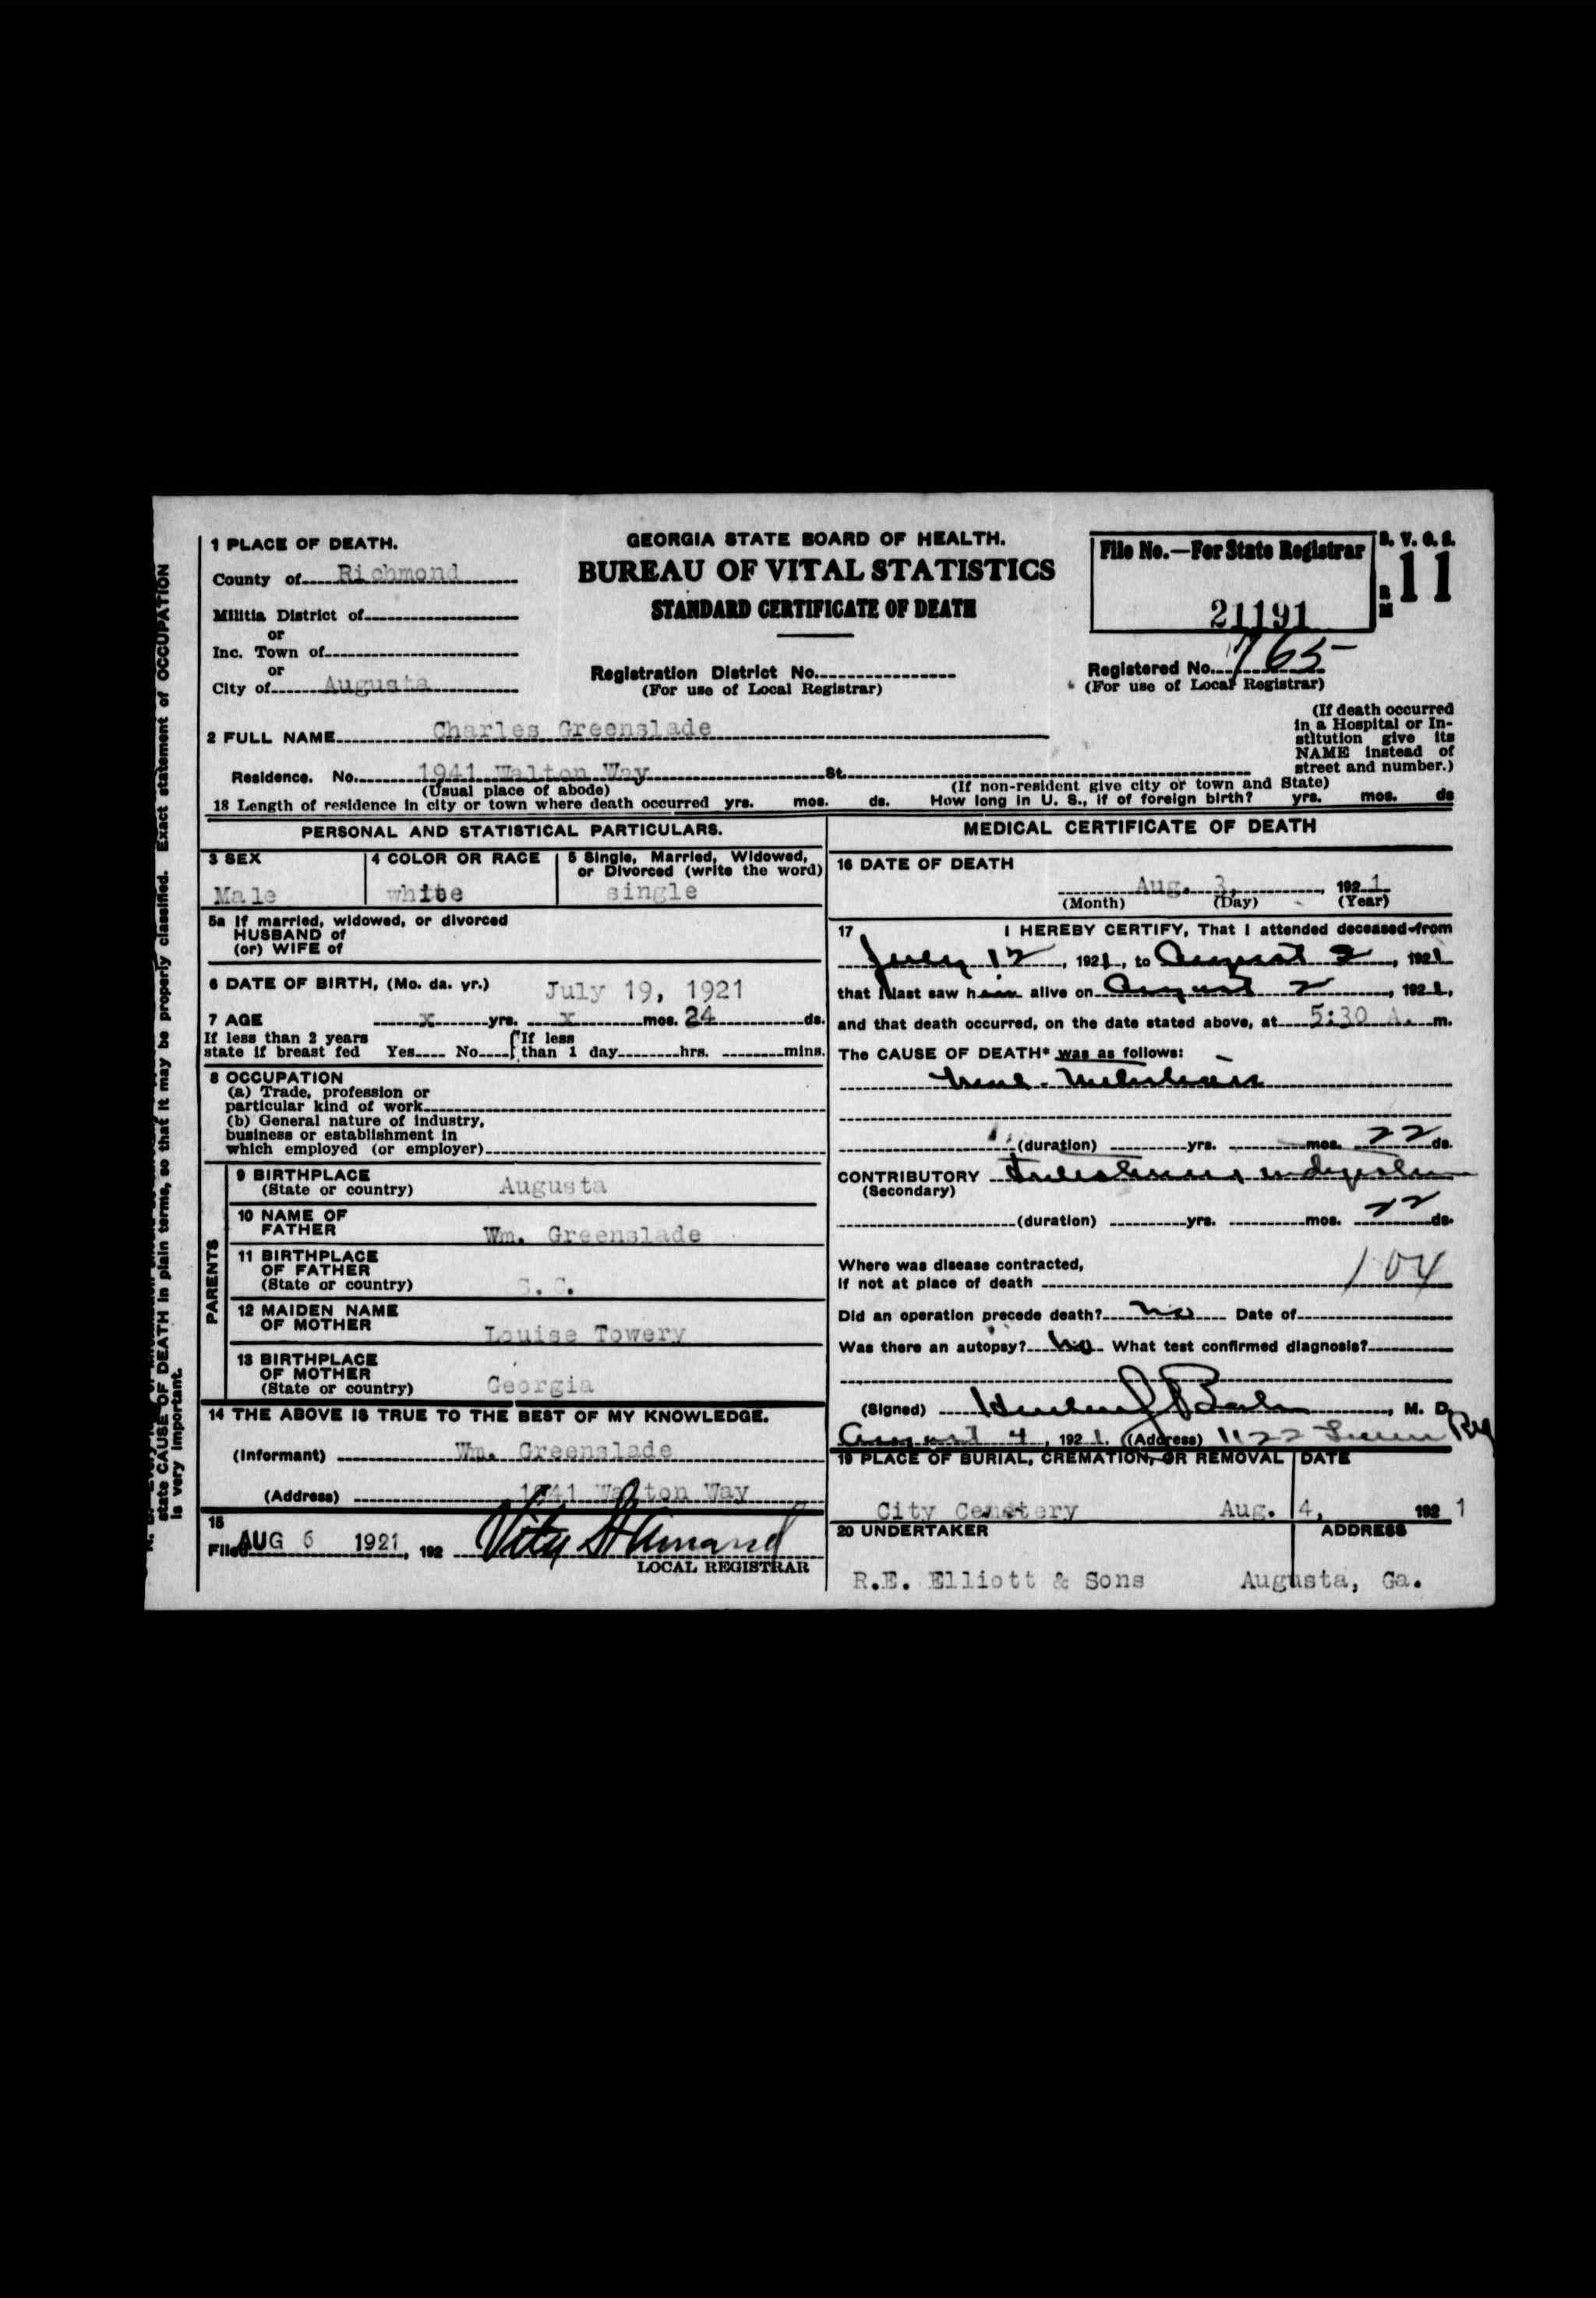 1 PLACE OF DEATH.
County of Richmond
Militia District of
or
Inc. Town of
or
City of Augusta
GEORGIA STATE BOARD OF HEALTH.
BUREAU OF VITAL STATISTICS
STANDARD CERTIFICATE OF DEATH
Registration District No.
(For use of Local Registrar)
File No.—For State Registrar
21191
S. V. O. S.
R M 11
Registered No. 765
(For use of Local Registrar)
2 FULL NAME Charles Greenslade
(If death occurred in a Hospital or Institution give its NAME instead of street and number.)
Residence. No. 1941 Walton Way St.
(Usual place of abode) (If non-resident give city or town and State)
18 Length of residence in city or town where death occurred yrs. mos. ds. How long in U. S., if of foreign birth? yrs. mos. ds
PERSONAL AND STATISTICAL PARTICULARS.
3 SEX
Male
4 COLOR OR RACE
white
5 Single, Married, Widowed,
or Divorced (write the word)
single
5a If married, widowed, or divorced
HUSBAND of
(or) WIFE of
6 DATE OF BIRTH, (Mo. da. yr.) July 19, 1921
7 AGE x yrs. x mos. 24 ds.
If less than 2 years
state if breast fed Yes No
If less
than 1 day hrs. mins.
8 OCCUPATION
(a) Trade, profession or
particular kind of work
(b) General nature of industry,
business or establishment in
which employed (or employer)
PARENTS
9 BIRTHPLACE
(State or country) Augusta
10 NAME OF
FATHER Wm. Greenslade
11 BIRTHPLACE
OF FATHER
(State or country) S. C.
12 MAIDEN NAME
OF MOTHER Louise Towery
13 BIRTHPLACE
OF MOTHER
(State or country) Georgia
14 THE ABOVE IS TRUE TO THE BEST OF MY KNOWLEDGE.
(Informant) Wm. Greenslade
(Address) 1941 Walton Way
15
Filed AUG 6 1921, 192
LOCAL REGISTRAR
MEDICAL CERTIFICATE OF DEATH
16 DATE OF DEATH
Aug. 3, 192 1
(Month) (Day) (Year)
17 I HEREBY CERTIFY, That I attended deceased from
July 12, 1921, to August 2, 1921
that I last saw him alive on August 2, 1921,
and that death occurred, on the date stated above, at 5:30 A. m.
The CAUSE OF DEATH* was as follows:
(duration) yrs. mos. 22 ds.
CONTRIBUTORY
(Secondary)
(duration) yrs. mos. 22 ds.
Where was disease contracted,
if not at place of death 104
Did an operation precede death? No Date of
Was there an autopsy? No What test confirmed diagnosis?
(Signed) , M. D.
August 4, 1921. (Address) 1122
19 PLACE OF BURIAL, CREMATION, OR REMOVAL DATE
City Cemetery Aug. 4, 192 1
20 UNDERTAKER ADDRESS
R.E. Elliott & Sons Augusta, Ga.
state CAUSE OF DEATH in plain terms, so that it may be properly classified. Exact statement of OCCUPATION
is very important.